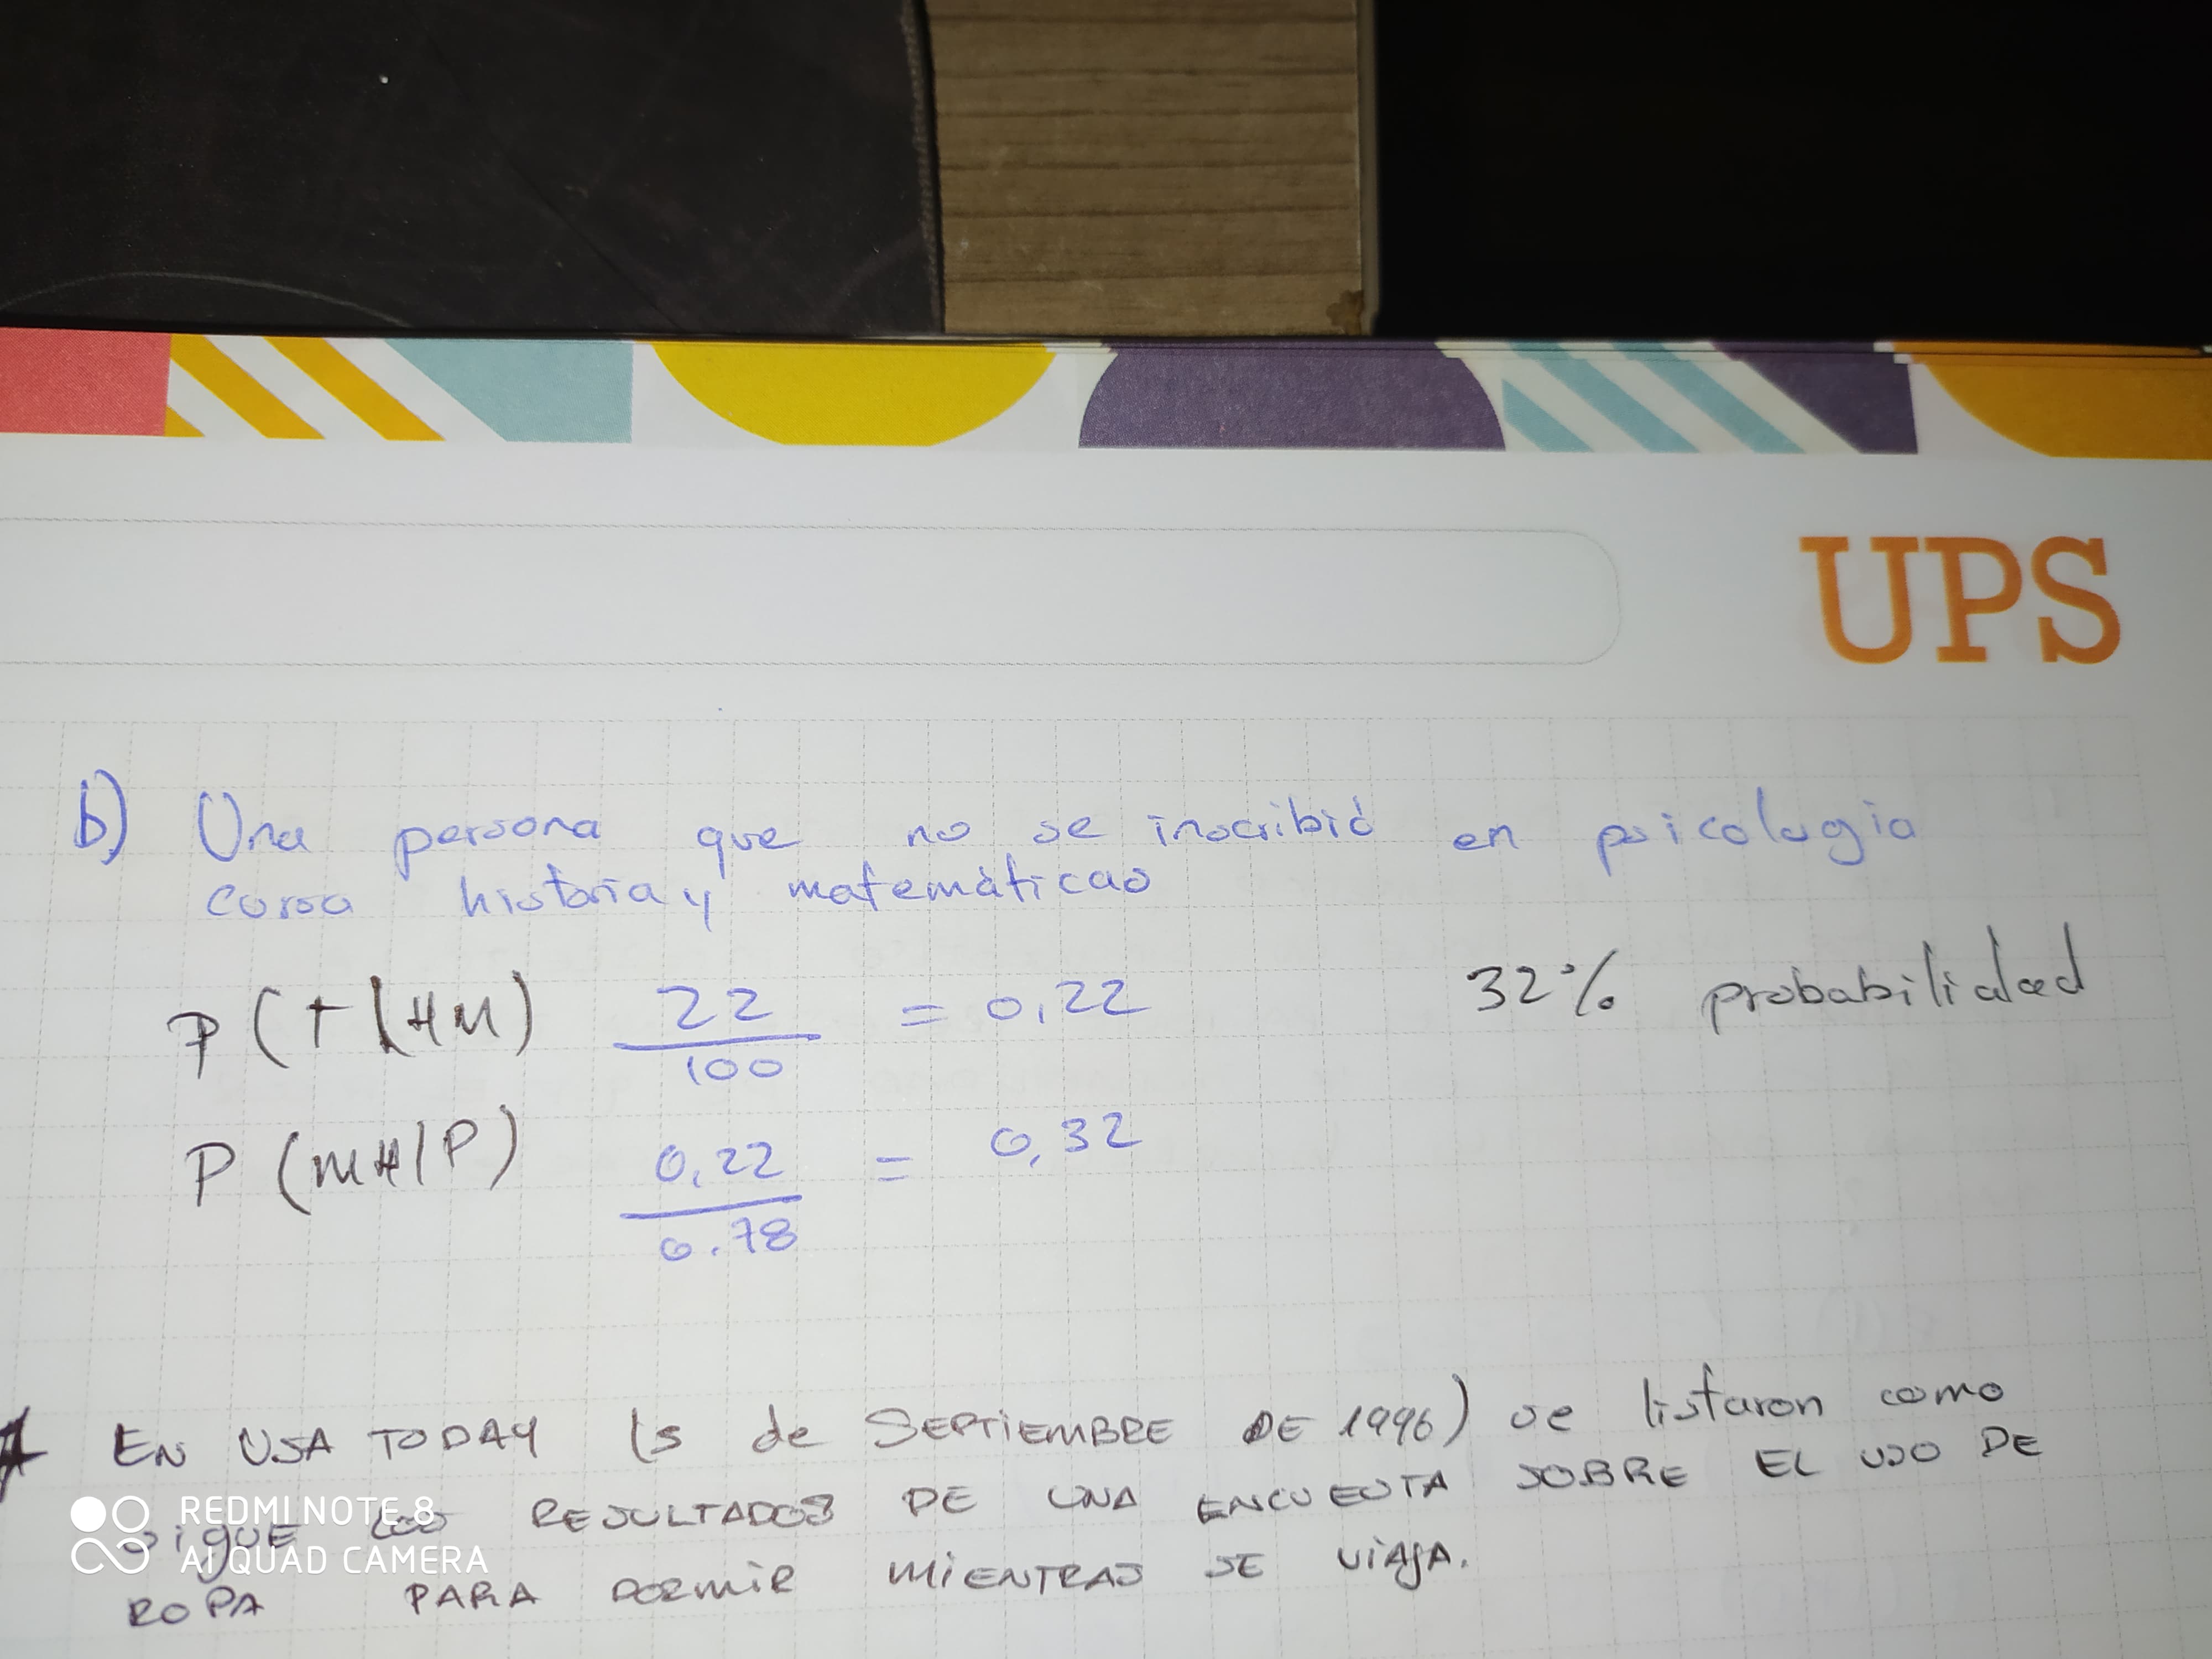 UPS
b) Una persona que no se inscribió en psicologia
cursa historia y matemàticas
P(+|HM) 22/100 = 0,22 32% probabilidad
P(MH|P) 0,22/0.78 = 0,32
EN USA TODAY (5 de SEPTIEMBRE DE 1996) se listaron como
sigue los RESULTADOS DE UNA ENCUESTA SOBRE EL USO DE
ROPA PARA DORMIR MIENTRAS SE VIAJA.
REDMI NOTE 8
AI QUAD CAMERA